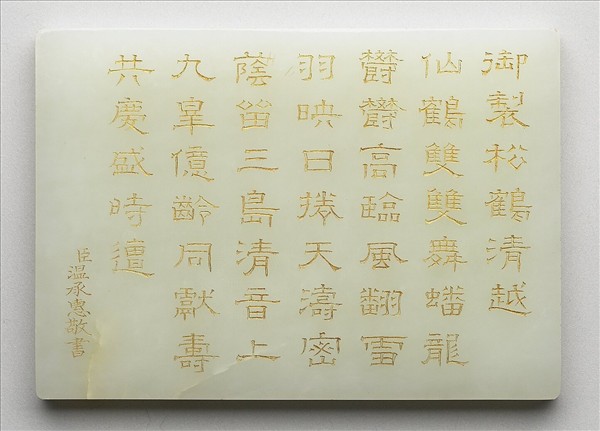 御製松鶴清越
仙鶴雙雙舞蟠龍
鬱鬱高臨風翻雪
羽映日捲天濤密
蔭留三島清音上
九皋億齡同獻壽
共慶盛時遭
臣温承惠敬書